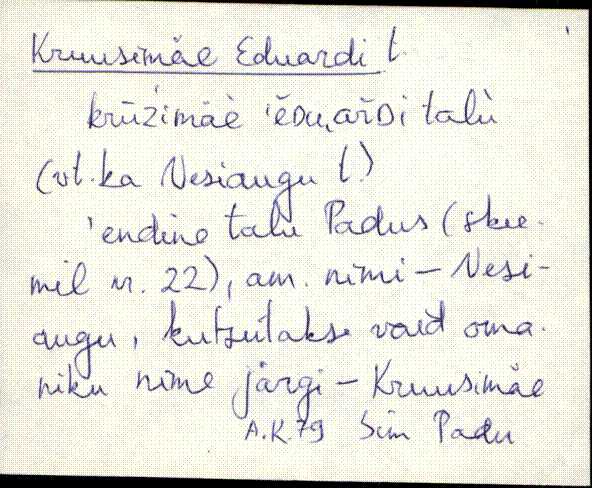 Kruusimäe Eduardi t.
krūZimäè 'ēDu̬ařDi talù
(vt. ka Vesiaugu t.)
'endine talu Padus (skee-
mil nr. 22), am. nimi – Vesi-
augu, kutsutakse vaid oma-
niku nime järgi – Kruusimäe
A.K.79 Sim Padu